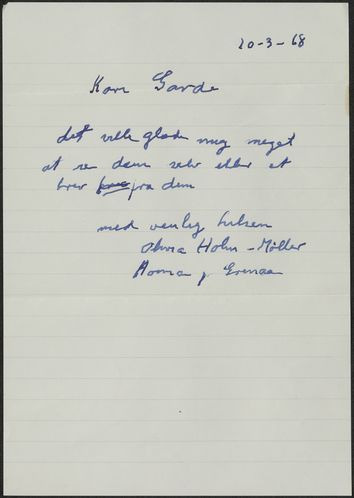 20-3-68
Kære Garde
det ville glæde mig meget
at se dem selv eller et
brev fra dem
med venlig hilsen
Olivia Holm-Møller
Homå pr Grenaa